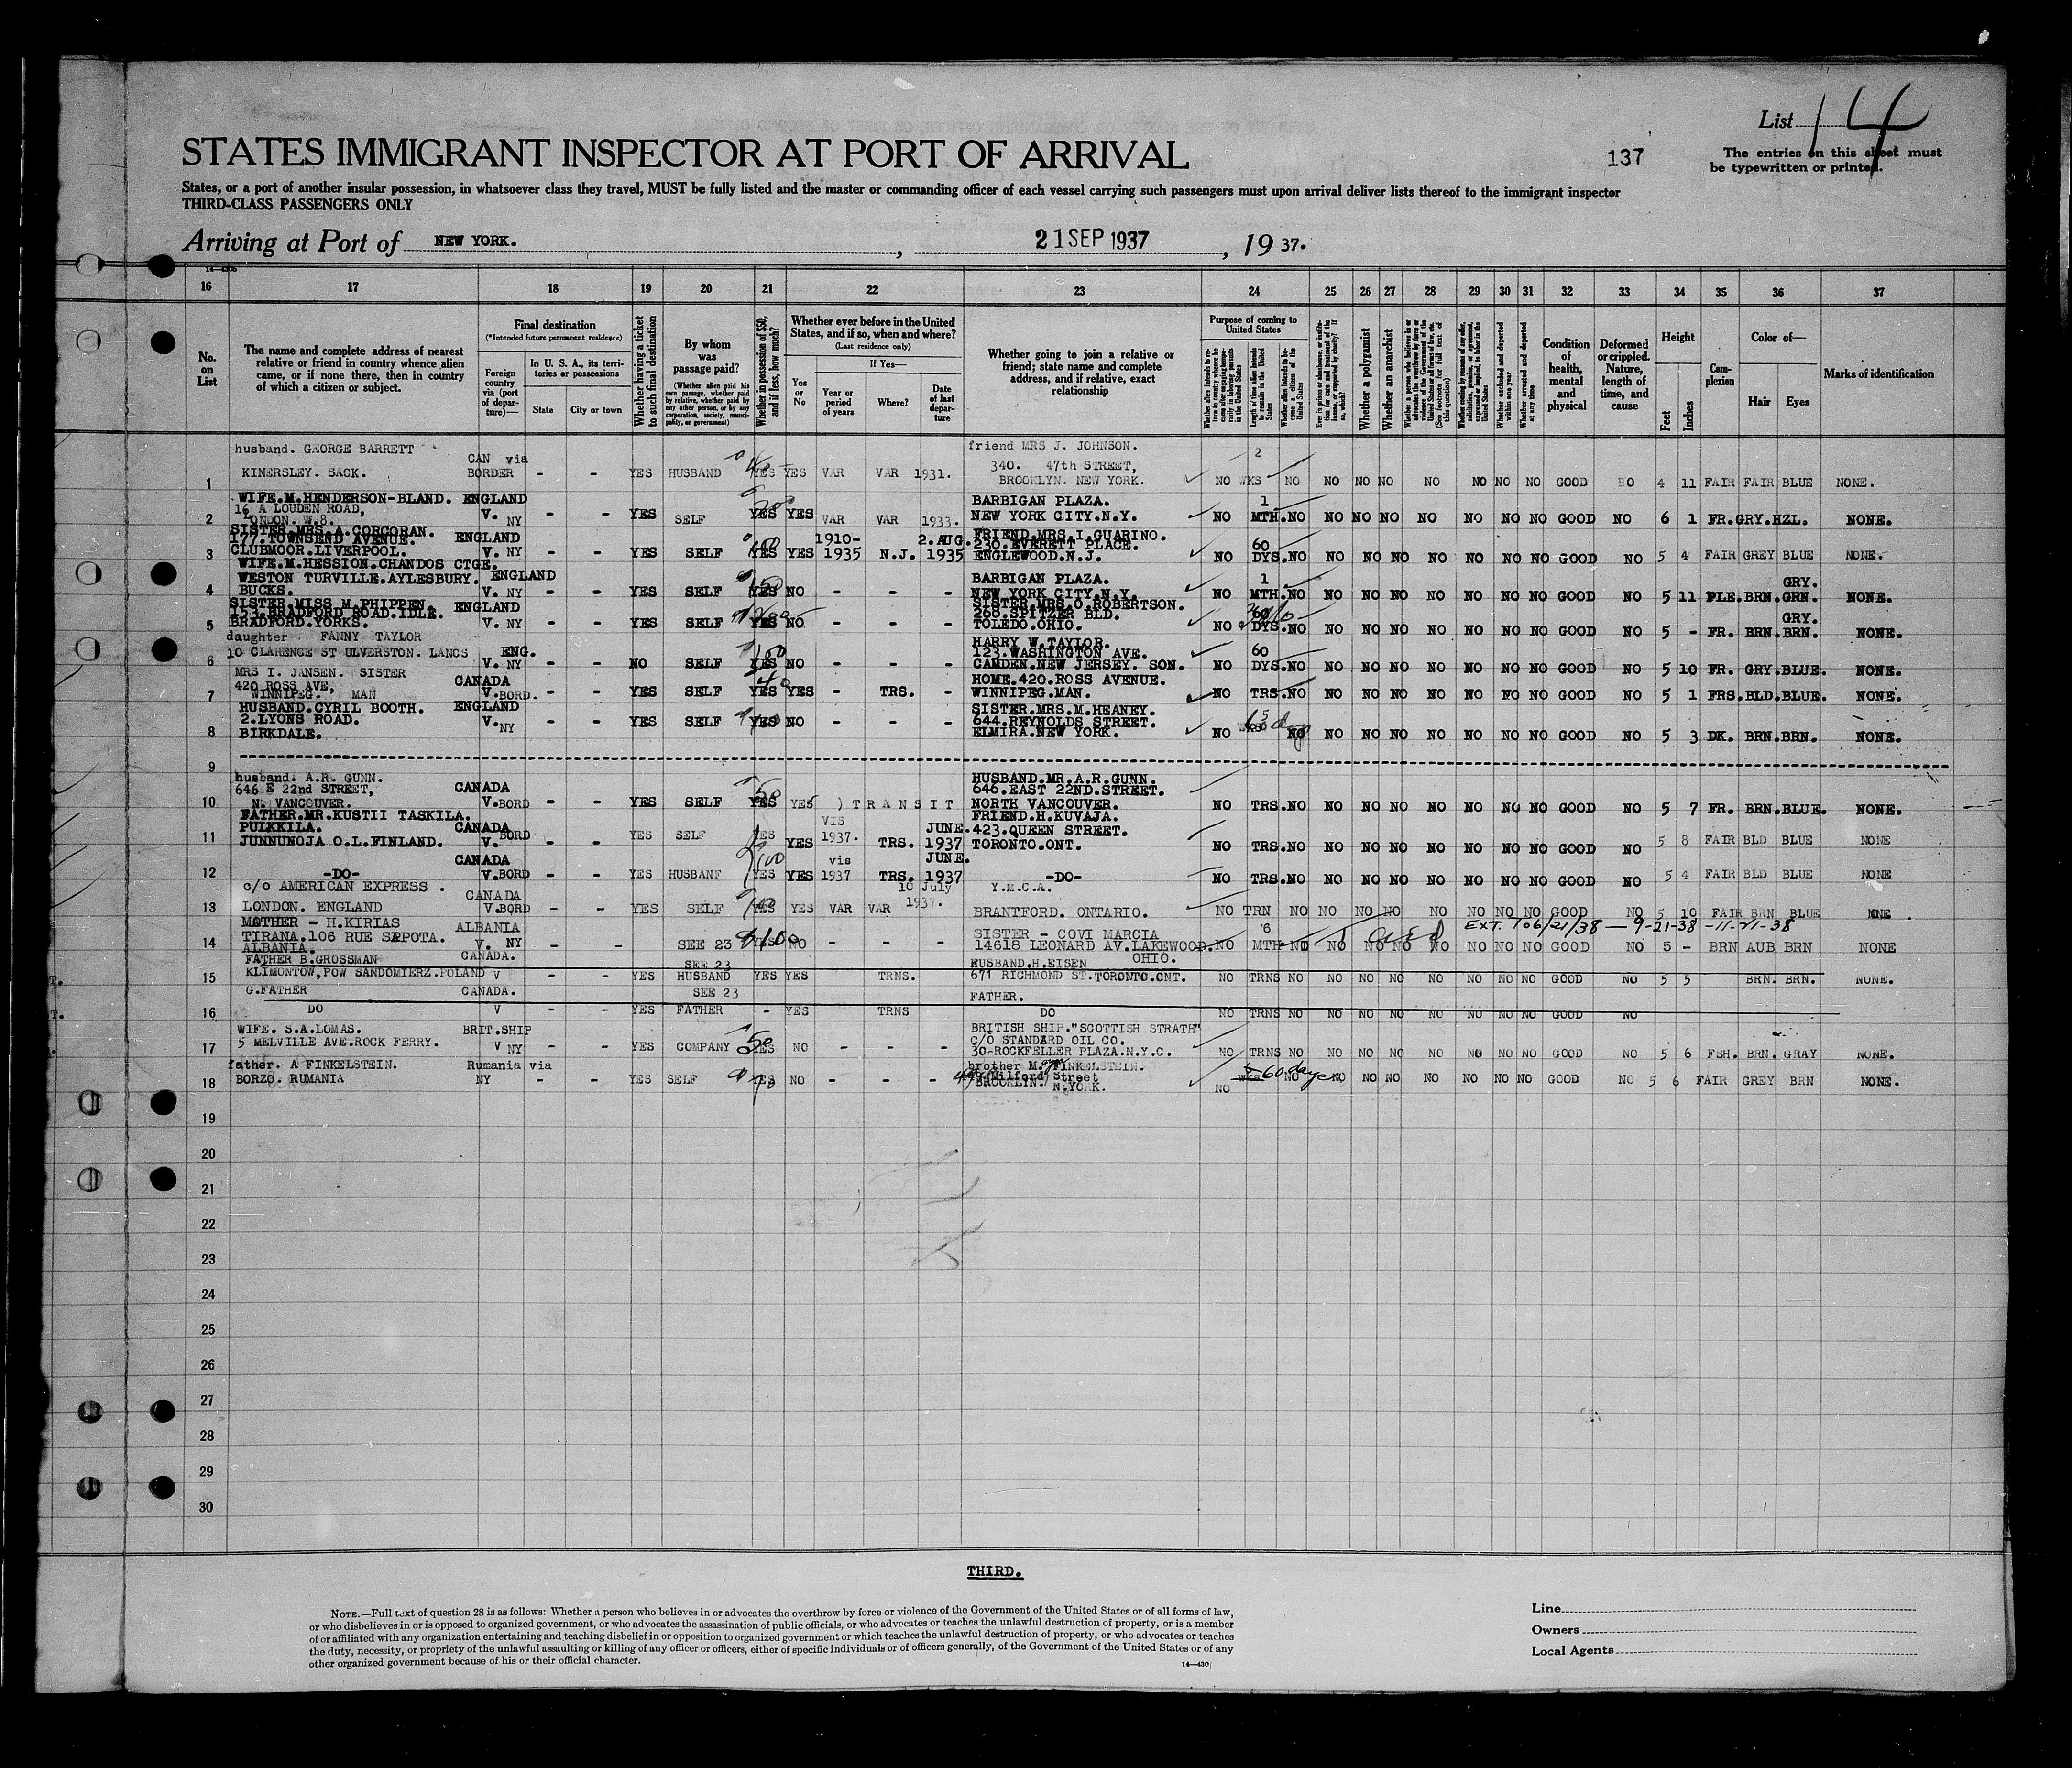 List 14
137
The entries on this sheet must
be typewritten or printed.
STATES IMMIGRANT INSPECTOR AT PORT OF ARRIVAL
States, or a port of another insular possession, in whatsoever class they travel, MUST be fully listed and the master or commanding officer of each vessel carrying such passengers must upon arrival deliver lists thereof to the immigrant inspector
THIRD-CLASS PASSENGERS ONLY
Arriving at Port of NEW YORK. , 21 SEP 1937 , 19 37.
16 17 18 19 20 21 22 23 24 25 26 27 28 29 30 31 32 33 34 35 36 37
No. on List
The name and complete address of nearest relative or friend in country whence alien came, or if none there, then in country of which a citizen or subject.
Final destination
(*Intended future permanent residence)
Foreign country via (port of departure)—
In U. S. A., its territories or possessions
State
City or town
Whether having a ticket to such final destination
By whom was passage paid?
(Whether alien paid his own passage, whether paid by relative, whether paid by any other person, or by any corporation, society, municipality, or government)
Whether in possession of $50, and if less, how much?
Whether ever before in the United States, and if so, when and where?
(Last residence only)
Yes or No
If Yes—
Year or period of years
Where?
Date of last departure
Whether going to join a relative or friend; state name and complete address, and if relative, exact relationship
Purpose of coming to United States
Whether a polygamist
Whether an anarchist
Condition of health, mental and physical
Deformed or crippled. Nature, length of time, and cause
Height
Feet
Inches
Complexion
Color of—
Hair
Eyes
Marks of identification
husband. GEORGE BARRETT friend MRS J. JOHNSON.
CAN via 340. 47th STREET, 2
1 KINERSLEY. SACK. BORDER - - YES HUSBAND YES YES VAR VAR 1931. BROOKLYN. NEW YORK. NO WKS NO NO NO NO NO NO NO NO GOOD 4 11 FAIR FAIR BLUE NONE.
WIFE.M.HENDERSON-BLAND. ENGLAND BARBIGAN PLAZA. 1
16 A LOUDEN ROAD,
2 LONDON. W.8. V. NY - - YES SELF YES YES VAR VAR 1933. NEW YORK CITY.N.Y. NO MTH.NO NO NO NO NO NO NO NO GOOD NO 6 1 FR.GRY.HZL. NONE.
SISTER.MRS.A.CORCORAN. 1910- 2.AUG. FRIEND.MRS.I.GUARINO.
177.TOWNSEND AVENUE. ENGLAND 230.EVERETT PLACE. 60
3 CLUBMOOR.LIVERPOOL. V. NY - - YES SELF YES YES 1935 N.J. 1935 ENGLEWOOD.N.J. NO DYS.NO NO NO NO NO NO NO NO GOOD NO 5 4 FAIR GREY BLUE NONE.
WIFE.M.HESSION.CHANDOS CTGE.
WESTON TURVILLE.AYLESBURY. ENGLAND BARBIGAN PLAZA. 1 GRY.
4 BUCKS. V. NY - - YES SELF YES NO - - - NEW YORK CITY.N.Y. NO MTH.NO NO NO NO NO NO NO NO GOOD NO 5 11 PLE.BRN.GRN. NONE.
SISTER.MISS M.PHIPPEN. ENGLAND SISTER.MRS.O.ROBERTSON.
153.BRADFORD ROAD.IDLE. 268.SPITZER BLD. 60 GRY.
5 BRADFORD.YORKS. V. NY - - YES SELF YES NO - - - TOLEDO.OHIO. NO DYS.NO NO NO NO NO NO NO NO GOOD NO 5 - FR. BRN.BRN. NONE.
daughter FANNY TAYLOR HARRY W.TAYLOR.
10 CLARENCE ST ULVERSTON. LANCS ENG. 123.WASHINGTON AVE. 60
6 V. NY - - NO SELF YES NO - - - CAMDEN.NEW JERSEY. SON. NO DYS.NO NO NO NO NO NO NO NO GOOD NO 5 10 FR. GRY.BLUE. NONE.
MRS I. JANSEN. SISTER
420 ROSS AVE, CANADA HOME.420.ROSS AVENUE.
7 WINNIPEG. MAN V.BORD. - - YES SELF YES YES - TRS. - WINNIPEG.MAN. NO TRS.NO NO NO NO NO NO NO NO GOOD NO 5 1 FRS.BLD.BLUE. NONE.
HUSBAND.CYRIL BOOTH. ENGLAND SISTER.MRS.M.HEANEY.
2.LYONS ROAD. V. NY - - YES SELF YES NO - - - 644.REYNOLDS STREET.
8 BIRKDALE. ELMIRA.NEW YORK. NO NO NO NO NO NO NO NO NO GOOD NO 5 3 DK. BRN.BRN. NONE.
9
husband. A.R. GUNN. HUSBAND.MR.A.R.GUNN.
646 E 22nd STREET, CANADA 646.EAST 22ND.STREET.
10 N. VANCOUVER. V.BORD - - YES SELF YES YES ) TRANSIT NORTH VANCOUVER. NO TRS.NO NO NO NO NO NO NO NO GOOD NO 5 7 FR. BRN.BLUE. NONE.
FATHER.MR.KUSTII TASKILA. VIS FRIEND.H.KUVAJA.
PULKKILA. CANADA JUNE. 423.QUEEN STREET.
11 JUNNUNOJA O.L.FINLAND. V. BORD - - YES SELF YES YES 1937. TRS. 1937 TORONTO.ONT. NO TRS.NO NO NO NO NO NO NO NO GOOD NO 5 8 FAIR BLD BLUE NONE
CANADA vis JUNE.
12 -DO- V.BORD - - YES HUSBANF YES YES 1937 TRS. 1937 -DO- NO TRS.NO NO NO NO NO NO NO NO GOOD NO 5 4 FAIR BLD BLUE NONE
c/o AMERICAN EXPRESS . CANADA 10 July 1937. Y.M.C.A.
13 LONDON. ENGLAND V.BORD - - YES SELF YES YES VAR VAR BRANTFORD. ONTARIO. NO TRN NO NO NO NO NO NO NO NO GOOD NO 5 10 FAIR BRN BLUE NONE
MOTHER - H.KIRIAS ALBANIA SISTER - COVI MARCIA 6 EXT. TO 6/21/38 — 9-21-38 -11-21-38
14 TIRANA.106 RUE SAPOTA. V. NY - - SEE 23 NO 14618 LEONARD AV.LAKEWOOD. NO MTH NO NO NO NO NO NO NO NO GOOD NO 5 - BRN AUB BRN NONE
ALBANIA. OHIO.
FATHER B.GROSSMAN CANADA. SEE 23 HUSBAND.H.EISEN
15 KLIMONTOW,POW SANDOMIERZ.POLAND V - - YES HUSBAND YES YES TRNS. 671 RICHMOND ST.TORONTO.ONT. NO TRNS NO NO NO NO NO NO NO NO GOOD NO 5 5 BRN. BRN. NONE.
G.FATHER CANADA. SEE 23 FATHER.
16 DO V - - YES FATHER - YES TRNS DO NO TRNS NO NO NO NO NO NO NO NO GOOD NO
WIFE. S.A.LOMAS. BRIT.SHIP BRITISH SHIP."SCOTTISH STRATH"
5 MELVILLE AVE.ROCK FERRY. C/O STANDARD OIL CO.
17 V NY - - YES COMPANY YES NO - - - 30-ROCKFELLER PLAZA.N.Y.C. NO TRNS NO NO NO NO NO NO NO NO GOOD NO 5 6 FSH. BRN. GRAY NONE.
father. A FINKELSTEIN. Rumania via brother M. FINKELSTEIN.
18 BORZO. RUMANIA NY - - YES SELF YES NO - - - Milford Street 60 days NO NO NO NO NO NO NO GOOD NO 5 6 FAIR GREY BRN NONE.
BROOKLYN. N.YORK. NO
19
20
21
22
23
24
25
26
27
28
29
30
THIRD.
NOTE.—Full text of question 28 is as follows: Whether a person who believes in or advocates the overthrow by force or violence of the Government of the United States or of all forms of law,
or who disbelieves in or is opposed to organized government, or who advocates the assassination of public officials, or who advocates or teaches the unlawful destruction of property, or is a member
of or affiliated with any organization entertaining and teaching disbelief in or opposition to organized government or which teaches the unlawful destruction of property, or who advocates or teaches
the duty, necessity, or propriety of the unlawful assaulting or killing of any officer or officers, either of specific individuals or of officers generally, of the Government of the United States or of any
other organized government because of his or their official character.
14—430
Line
Owners
Local Agents